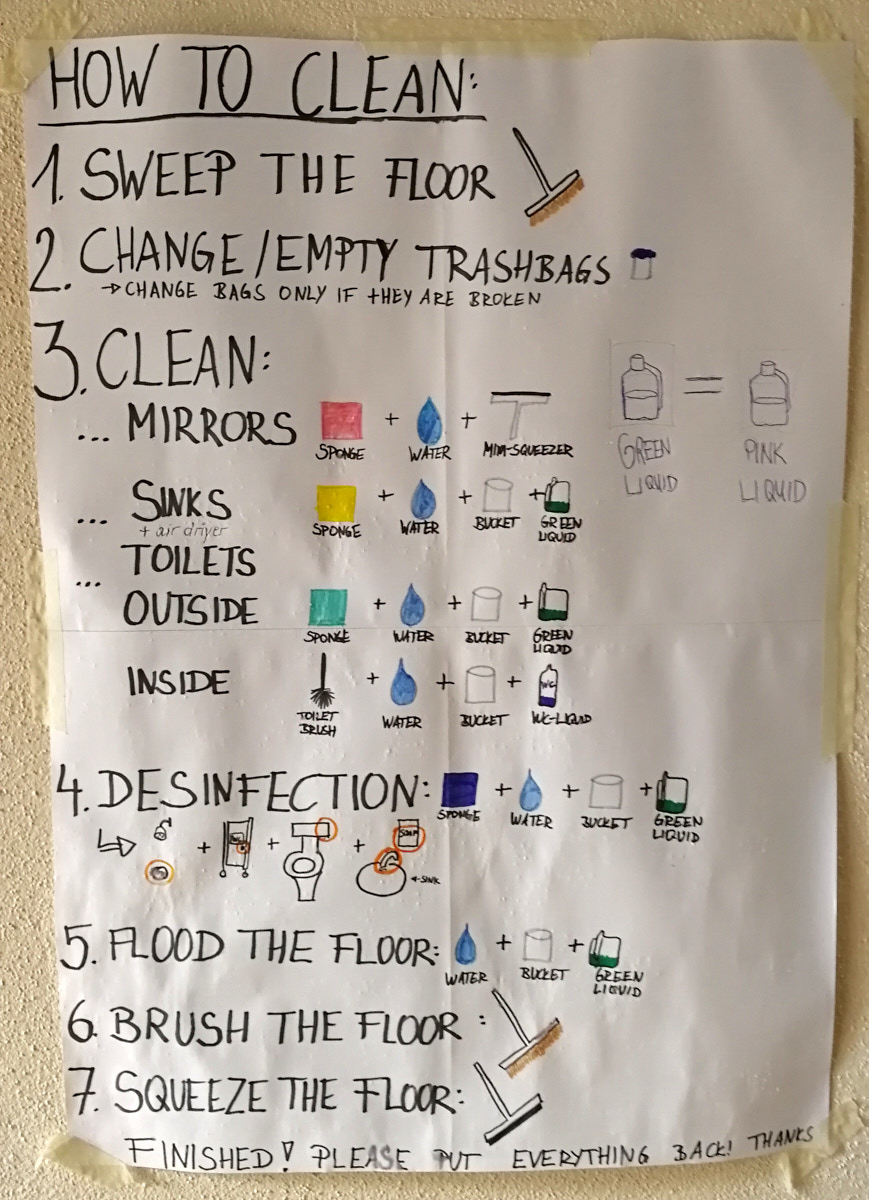 HOW TO CLEAN:
1. SWEEP THE FLOOR
2. CHANGE/EMPTY TRASHBAGS
→ CHANGE BAGS ONLY IF THEY ARE BROKEN
3. CLEAN:
... MIRRORS + +
SPONGE WATER MINI-SQUEEZER
= 
GREEN LIQUID
PINK LIQUID
... SINKS + + +
+ air driyer
SPONGE WATER BUCKET GREEN LIQUID
... TOILETS
OUTSIDE + + +
SPONGE WATER BUCKET GREEN LIQUID
INSIDE + + +
WC
TOILET BRUSH WATER BUCKET WC-LIQUID
4. DESINFECTION: + + +
SPONGE WATER BUCKET GREEN LIQUID
+ + +
SOAP
←SINK
5. FLOOD THE FLOOR: + +
WATER BUCKET GREEN LIQUID
6. BRUSH THE FLOOR :
7. SQUEEZE THE FLOOR:
FINISHED! PLEASE PUT EVERYTHING BACK! THANKS